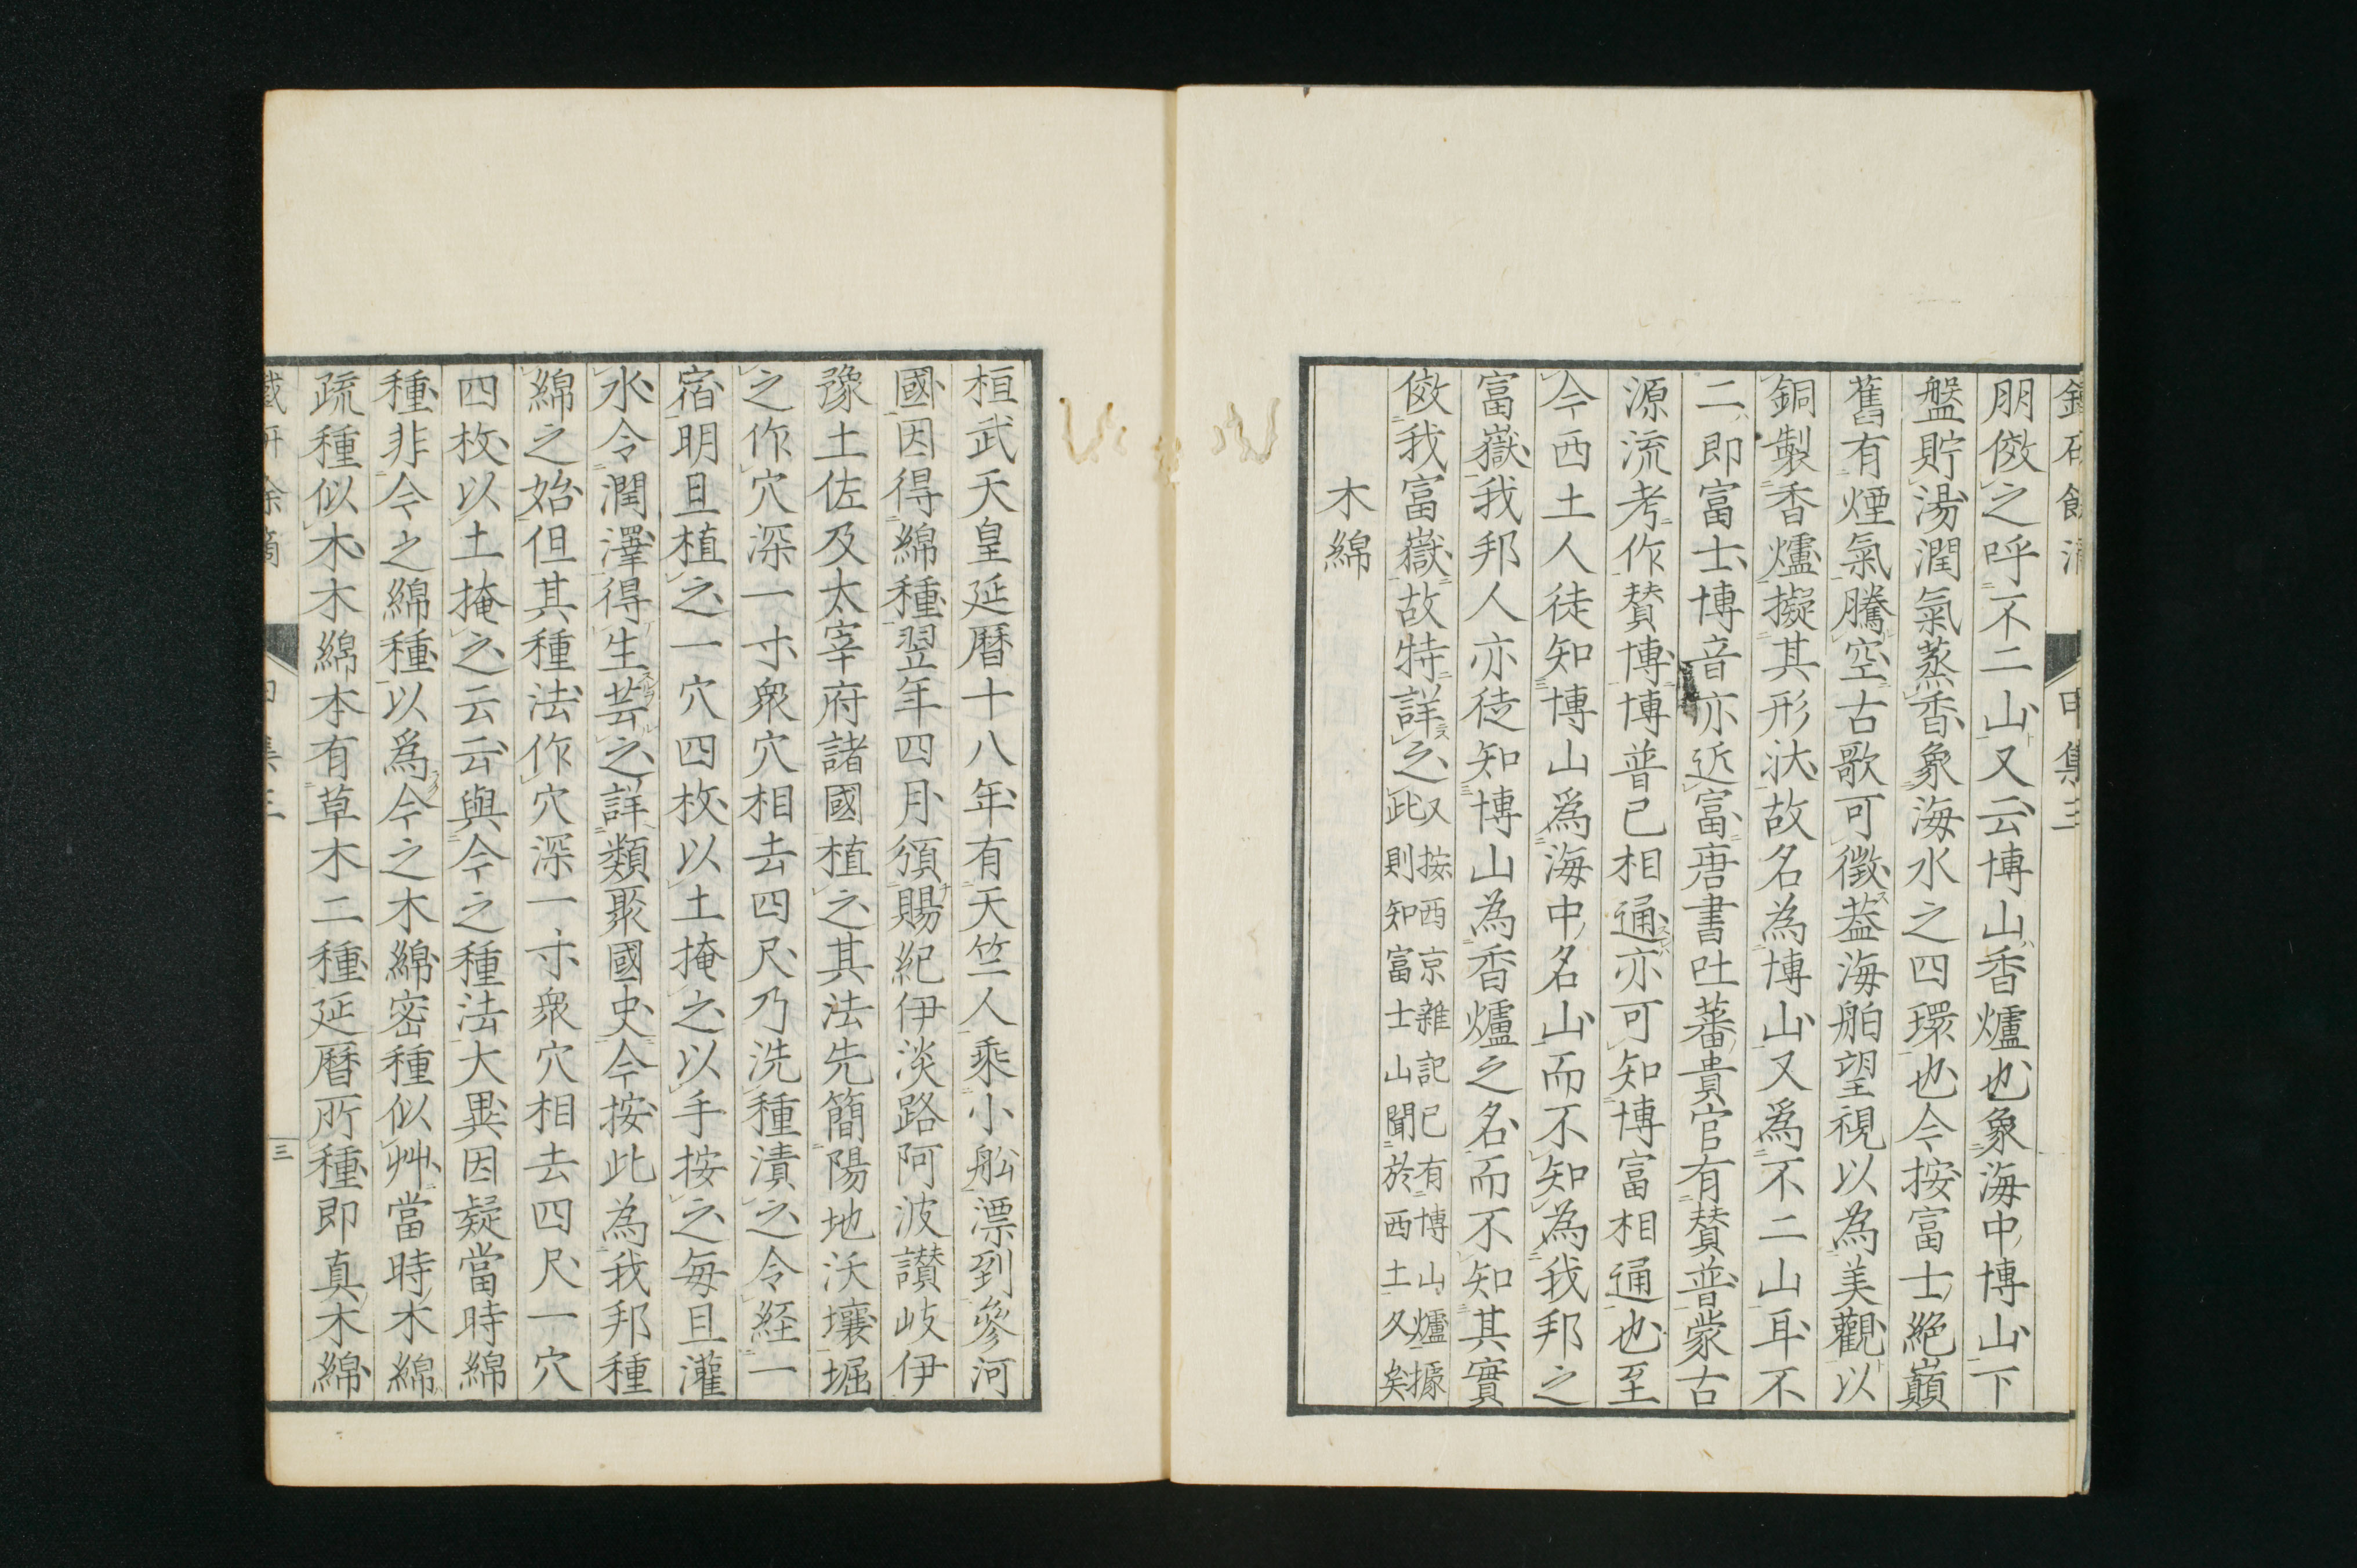 朋倣之呼不二山又云博山香爐也象海中博山下
盤貯湯潤氣蒸香象海水之四環也今按富士絶巓
舊有煙氣騰空古歌可徴葢海舶望視以為美觀以
銅製香爐擬其形狀故名為博山又爲不二山耳不
二即富士博音亦近富唐書吐蕃貴官有賛普蒙古
源流考作賛博博普已相通亦可知博富相通也至
今西土人徒知博山爲海中名山而不知為我邦之
富嶽我邦人亦徒知博山為香爐之名而不知其實
倣我富嶽故特詳之又按西京雜記已有博山爐據
此則知富士山聞於西土久矣
木綿
桓武天皇延暦十八年有天竺人乘小舩漂到參河
國因得綿種翌年四月頒賜紀伊淡路阿波讃岐伊
豫土佐及太宰府諸國植之其法先簡陽地沃壤堀
之作穴深一寸衆穴相去四尺乃洗種漬之令経一
宿明旦植之一穴四枚以土掩之以手按之毎旦灌
水令潤澤得生芸之詳類聚國史今按此為我邦種
綿之始但其種法作穴深一寸衆穴相去四尺一穴
四枚以土掩之云云與今之種法大異因疑當時綿
種非今之綿種以爲今之木綿密種似艸當時木綿
疏種似木木綿本有草木二種延暦所種即真木綿